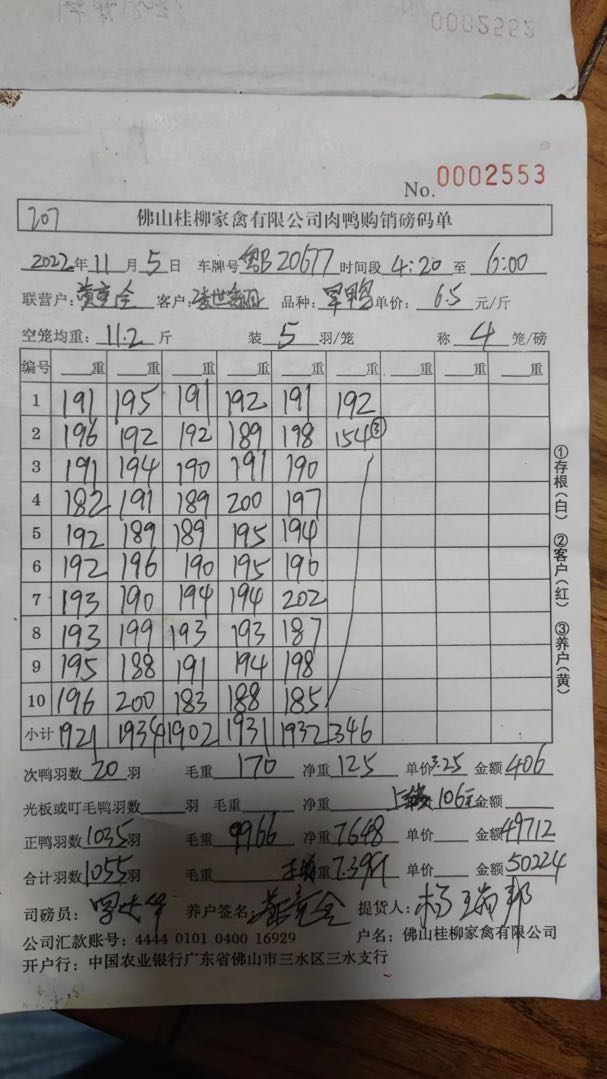 0002552
No. 0002553
207 佛山桂柳家禽有限公司肉鸭购销磅码单
2022年11月5日 车牌号 粤B20677 时间段 4:20 至 6:00
联营户: 客户: 品种: 旱鸭 单价: 6.5 元/斤
空笼均重: 11.2 斤 装 5 羽/笼 称 4 笼/磅
编号 重 重 重 重 重 重 重 重 重
1 191 195 191 192 191 192
2 196 192 192 189 198 154③
3 191 194 190 191 190
4 182 191 189 200 197
5 192 189 189 195 194
6 192 196 190 195 190
7 193 190 194 194 202
8 193 199 193 193 187
9 195 188 191 194 198
10 196 200 183 188 185
小计 1921 1934 1902 1931 1932 346
①存根(白) ②客户(红) ③养户(黄)
次鸭羽数 20 羽 毛重 170 净重 125 单价 3.25 金额 406
光板或叮毛鸭羽数 羽 毛重 净重 106元 金额
正鸭羽数 1035 羽 毛重 9966 净重 7648 单价 金额 49712
合计羽数 1055 羽 毛重 重 7.39斤 单价 金额 50224
司磅员: 养户签名: 提货人:
公司汇款账号: 4444 0101 0400 16929 户名: 佛山桂柳家禽有限公司
开户行: 中国农业银行广东省佛山市三水区三水支行